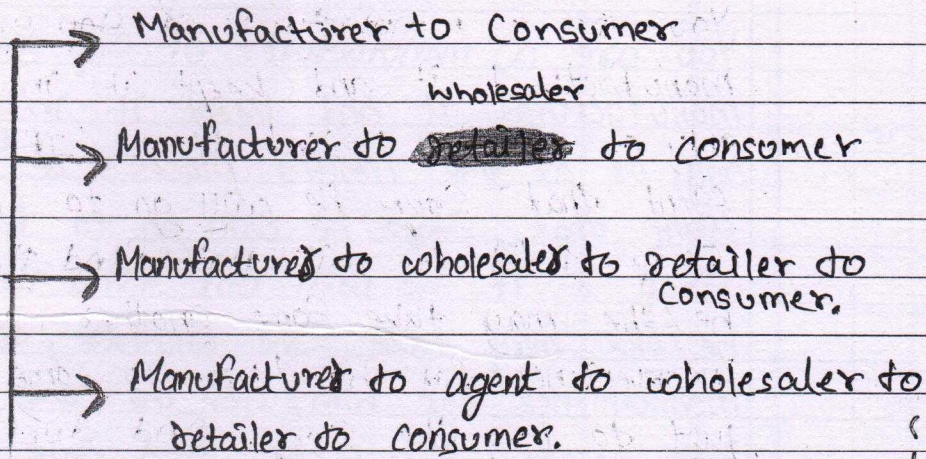 Manufacturer to Consumer
wholesaler
Manufacturer to retailer to consumer
Manufacturer to wholesaler to retailer to
consumer.
Manufacturer to agent to wholesaler to
retailer to consumer.